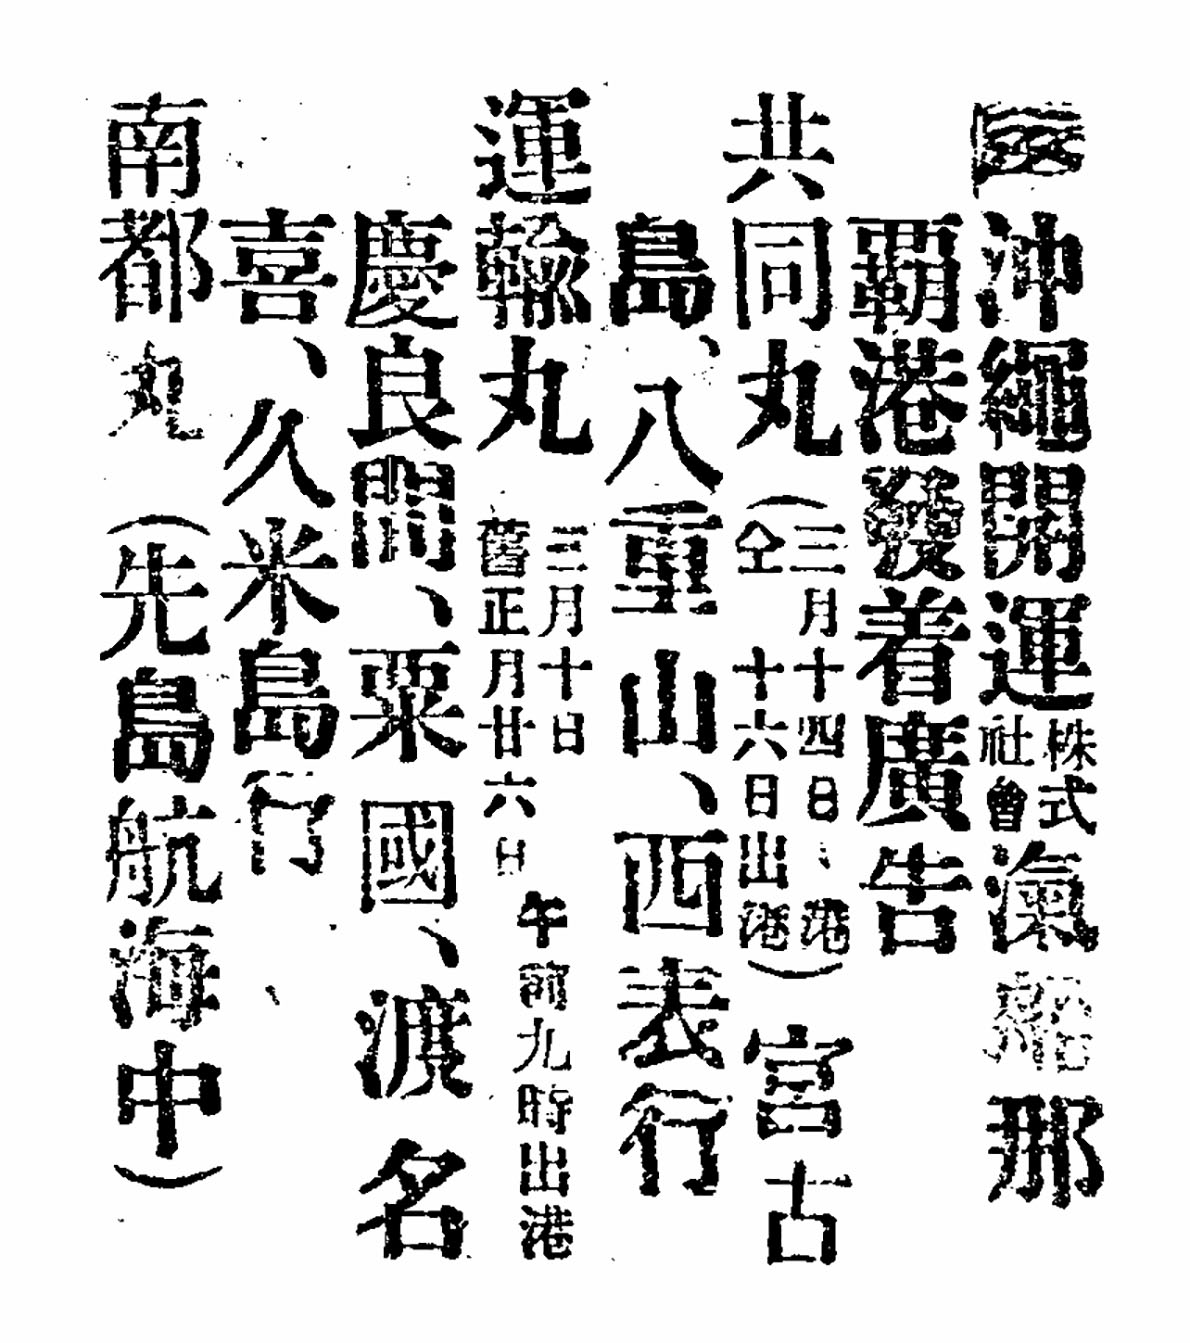 沖繩開運株式社會滊船那
覇港發着廣告
共同丸(三月十四日、港仝十六日出港)宮古
島、八重山、西表行
運輸丸 三月十日舊正月廿六日 午前九時出港
慶良間、粟國、渡名
喜、久米島行
南都丸 (先島航海中)